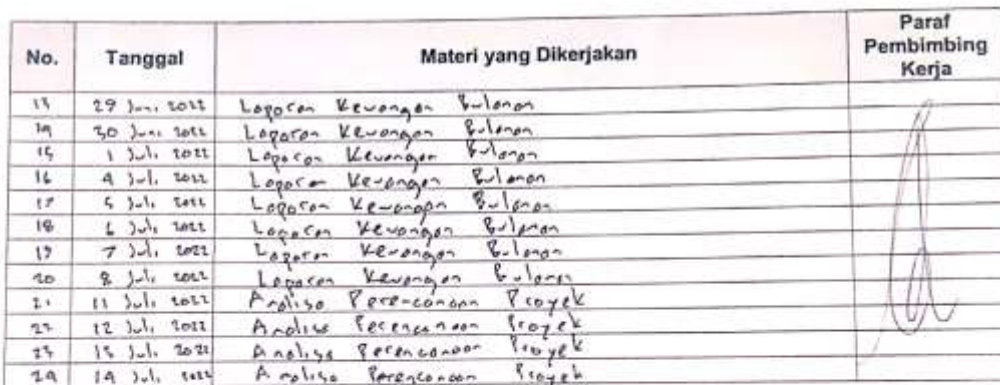 No. Tanggal Materi yang Dikerjakan Paraf Pembimbing Kerja
13 29 Juni 2022 Laporan Keuangan Bulanan
14 30 Juni 2022 Laporan Keuangan Bulanan
15 1 Juli 2022 Laporan Keuangan Bulanan
16 4 Juli 2022 Laporan Keuangan Bulanan
17 5 Juli 2022 Laporan Keuangan Bulanan
18 6 Juli 2022 Laporan Keuangan Bulanan
19 7 Juli 2022 Laporan Keuangan Bulanan
20 8 Juli 2022 Laporan Keuangan Bulanan
21 11 Juli 2022 Analisa Perencanaan Proyek
22 12 Juli 2022 Analisa Perencanaan Proyek
23 13 Juli 2022 Analisa Perencanaan Proyek
24 14 Juli 2022 Analisa Perencanaan Proyek